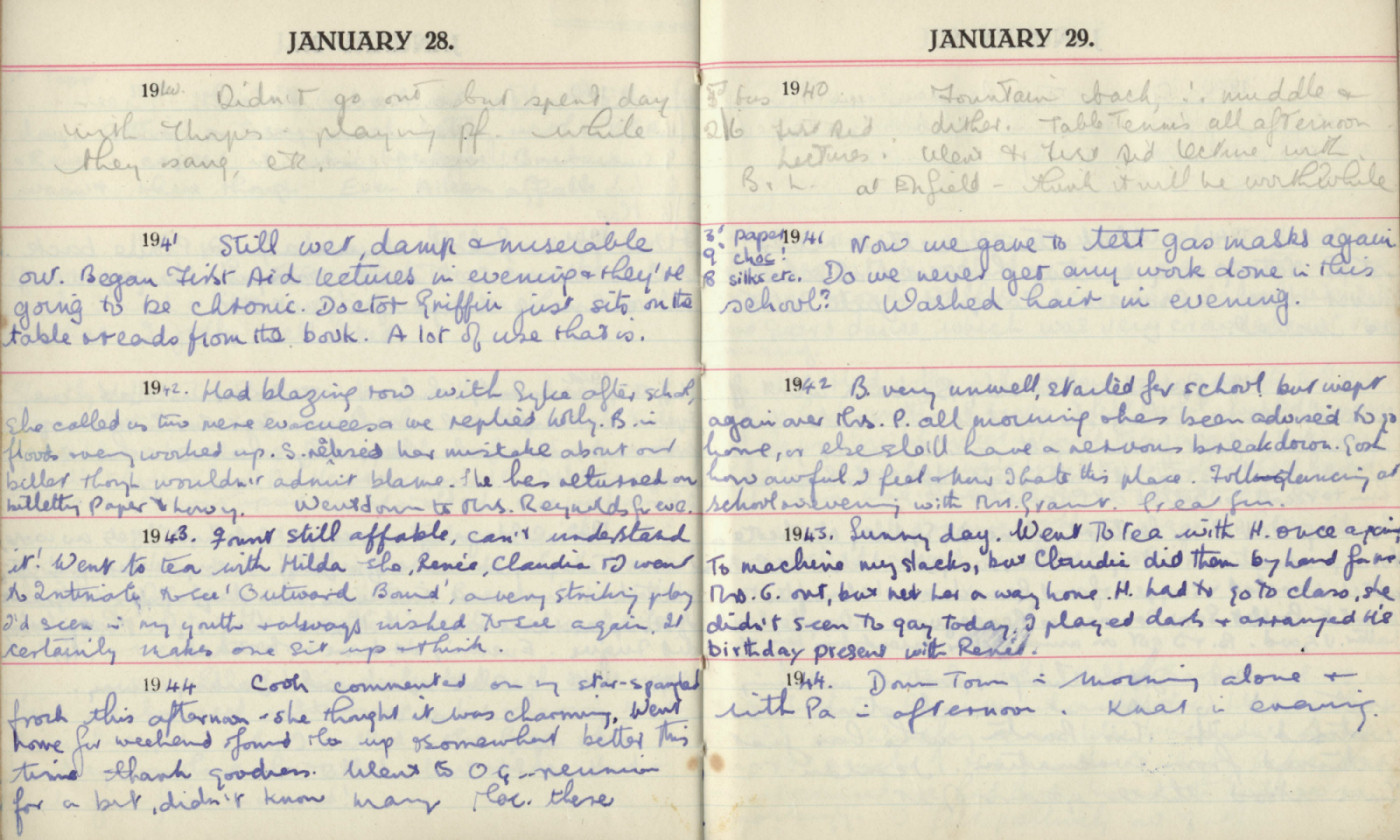 JANUARY 28.
1940. Didn't go out but spent day
with Thorpes & playing pf. while
they sang, etc.
1941 Still wet, damp & miserable
out. Began First Aid lectures in evening & they're
going to be chronic. Doctor Griffin just sits on the
table & reads from the book. A lot of use that is.
1942. Had blazing row with Syke after school,
she called us two mere evacuees & we replied hotly. B. in
floods & very worked up. S. her mistake about our
billet though wouldn't admit blame. She has returned our
Paper & how y. Went down to Mrs. Reynolds for eve.
1943. Fount still affable, can't understand
it! Went to tea with Hilda & she, Renée, Claudia & I went
to Intimate to see 'Outward Bound', a very striking play
I'd seen in my youth & always wished to see again. It
certainly makes one sit up & think.
1944 Cooth commented on my star-spangled
frock this afternoon - she thought it was charming. Went
home for weekend & found Mo up & somewhat better this
time thank goodness. Went to O.G. reunion
for a bit, didn't know many there
JANUARY 29.
1940. Fountain back, ∴ muddle &
dither. Table Tennis all afternoon
5d bus
2/6 First Aid
Lectures. Went to First Aid lecture with
B. & L. at Enfield - think it will be worthwhile
3d paper
9. choc!
8 silks etc.
1941 Now we gave to test gas masks again
Do we never get any work done in this
school? Washed hair in evening.
1942 B. very unwell, started for school but wept
again over Mrs. P. all morning & has been advised to go
home, or else she'll have a nervous breakdown. Gosh
how awful I feel & how I hate this place. Folk dancing at
school & evening with Mrs. Grant. Great fun.
1943. Sunny day. Went To Tea with H. once again
To machine my slacks, but Claudia did them by hand for me.
Mrs. G. out, but met her on way home. H. had to go to class, she
didn't seem too gay today. I played darts & arranged H's
birthday present with Renée.
1944. Down Town in morning alone &
with Pa in afternoon Knat in evening.